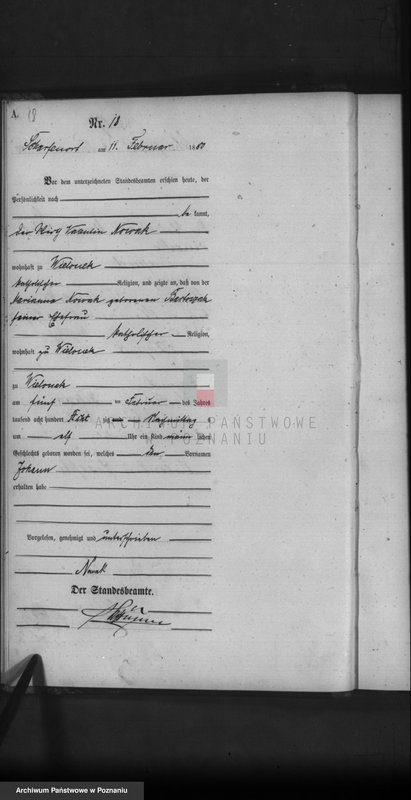 A. 18
Nr. 18
Scharfenort am 11. Februar 1880
Vor dem unterzeichneten Standesbeamten erschien heute, der
Persönlichkeit nach
be kannt,
der Nowak
wohnhaft zu Wielonek
katholischer Religion, und zeigte an, daß von der
Marianna Nowak geborenen
seiner Ehefrau
katholischer Religion,
wohnhaft zu Wielonek
zu Wielonek
am fünf ten Februar des Jahres
tausend acht hundert Acht zig Nachmittag s
um elf Uhr ein Kind männ lichen
Geschlechts geboren worden sei, welches den Vornamen
Johann
erhalten habe
ARCHIWUM PAŃSTWOWE
W POZNANIU
Vorgelesen, genehmigt und unterschrieben
Nowak
Der Standesbeamte.
Archiwum Państwowe w Poznaniu